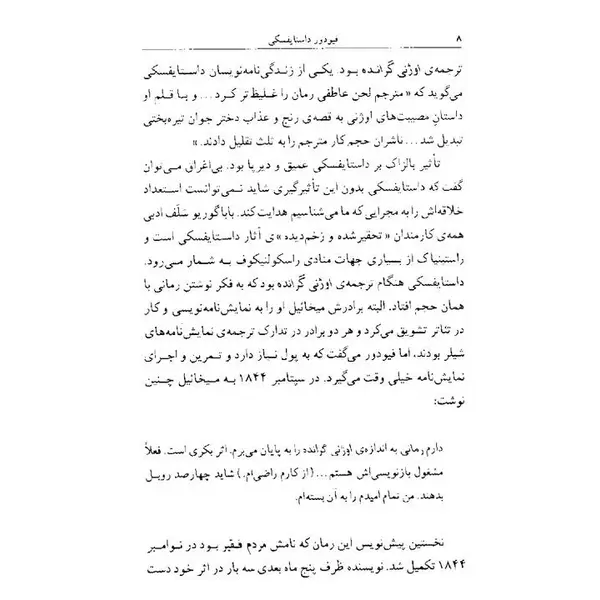 ۸ فیودور داستایفسکی
ترجمه‌ی اوژنی گرانده بود. یکی از زندگی‌نامه‌نویسان داستایفسکی
می‌گوید که «مترجم لحن عاطفی رمان را غلیظ‌تر کرد... و با قلم او
داستانِ مصیبت‌های اوژنی به قصه‌ی رنج و عذاب دختر جوان تیره‌بختی
تبدیل شد... ناشران حجم کار مترجم را به ثلث تقلیل دادند.»
تأثیر بالزاک بر داستایفسکی عمیق و دیرپا بود. بی‌اغراق می‌توان
گفت که داستایفسکی بدون این تأثیرگیری شاید نمی‌توانست استعداد
خلاقه‌اش را به مجرایی که ما می‌شناسیم هدایت کند. باباگوریو سَلَف ادبی
همه‌ی کارمندان «تحقیرشده و زخم‌دیده»ی آثار داستایفسکی است و
راستینیاک از بسیاری جهات منادی راسکولنیکوف به شمار می‌رود.
داستایفسکی هنگام ترجمه‌ی اوژنی گرانده بود که به فکر نوشتن رمانی با
همان حجم افتاد. البته برادرش میخائیل او را به نمایش‌نامه‌نویسی و کار
در تئاتر تشویق می‌کرد و هر دو برادر در تدارک ترجمه‌ی نمایش‌نامه‌های
شیلر بودند، اما فیودور می‌گفت که به پول نیاز دارد و تمرین و اجرای
نمایش‌نامه خیلی وقت می‌گیرد. در سپتامبر ۱۸۴۴ به میخائیل چنین
نوشت:
دارم رمانی به اندازه‌ی اوژنی گرانده را به پایان می‌برم. اثر بکری است. فعلاً
مشغول بازنویسی‌اش هستم... (از کارم راضی‌ام.) شاید چهارصد روبل
بدهند. من تمام امیدم را به آن بسته‌ام.
نخستین پیش‌نویس این رمان که نامش مردم فقیر بود در نوامبر
۱۸۴۴ تکمیل شد. نویسنده ظرف پنج ماه بعدی سه بار در اثر خود دست